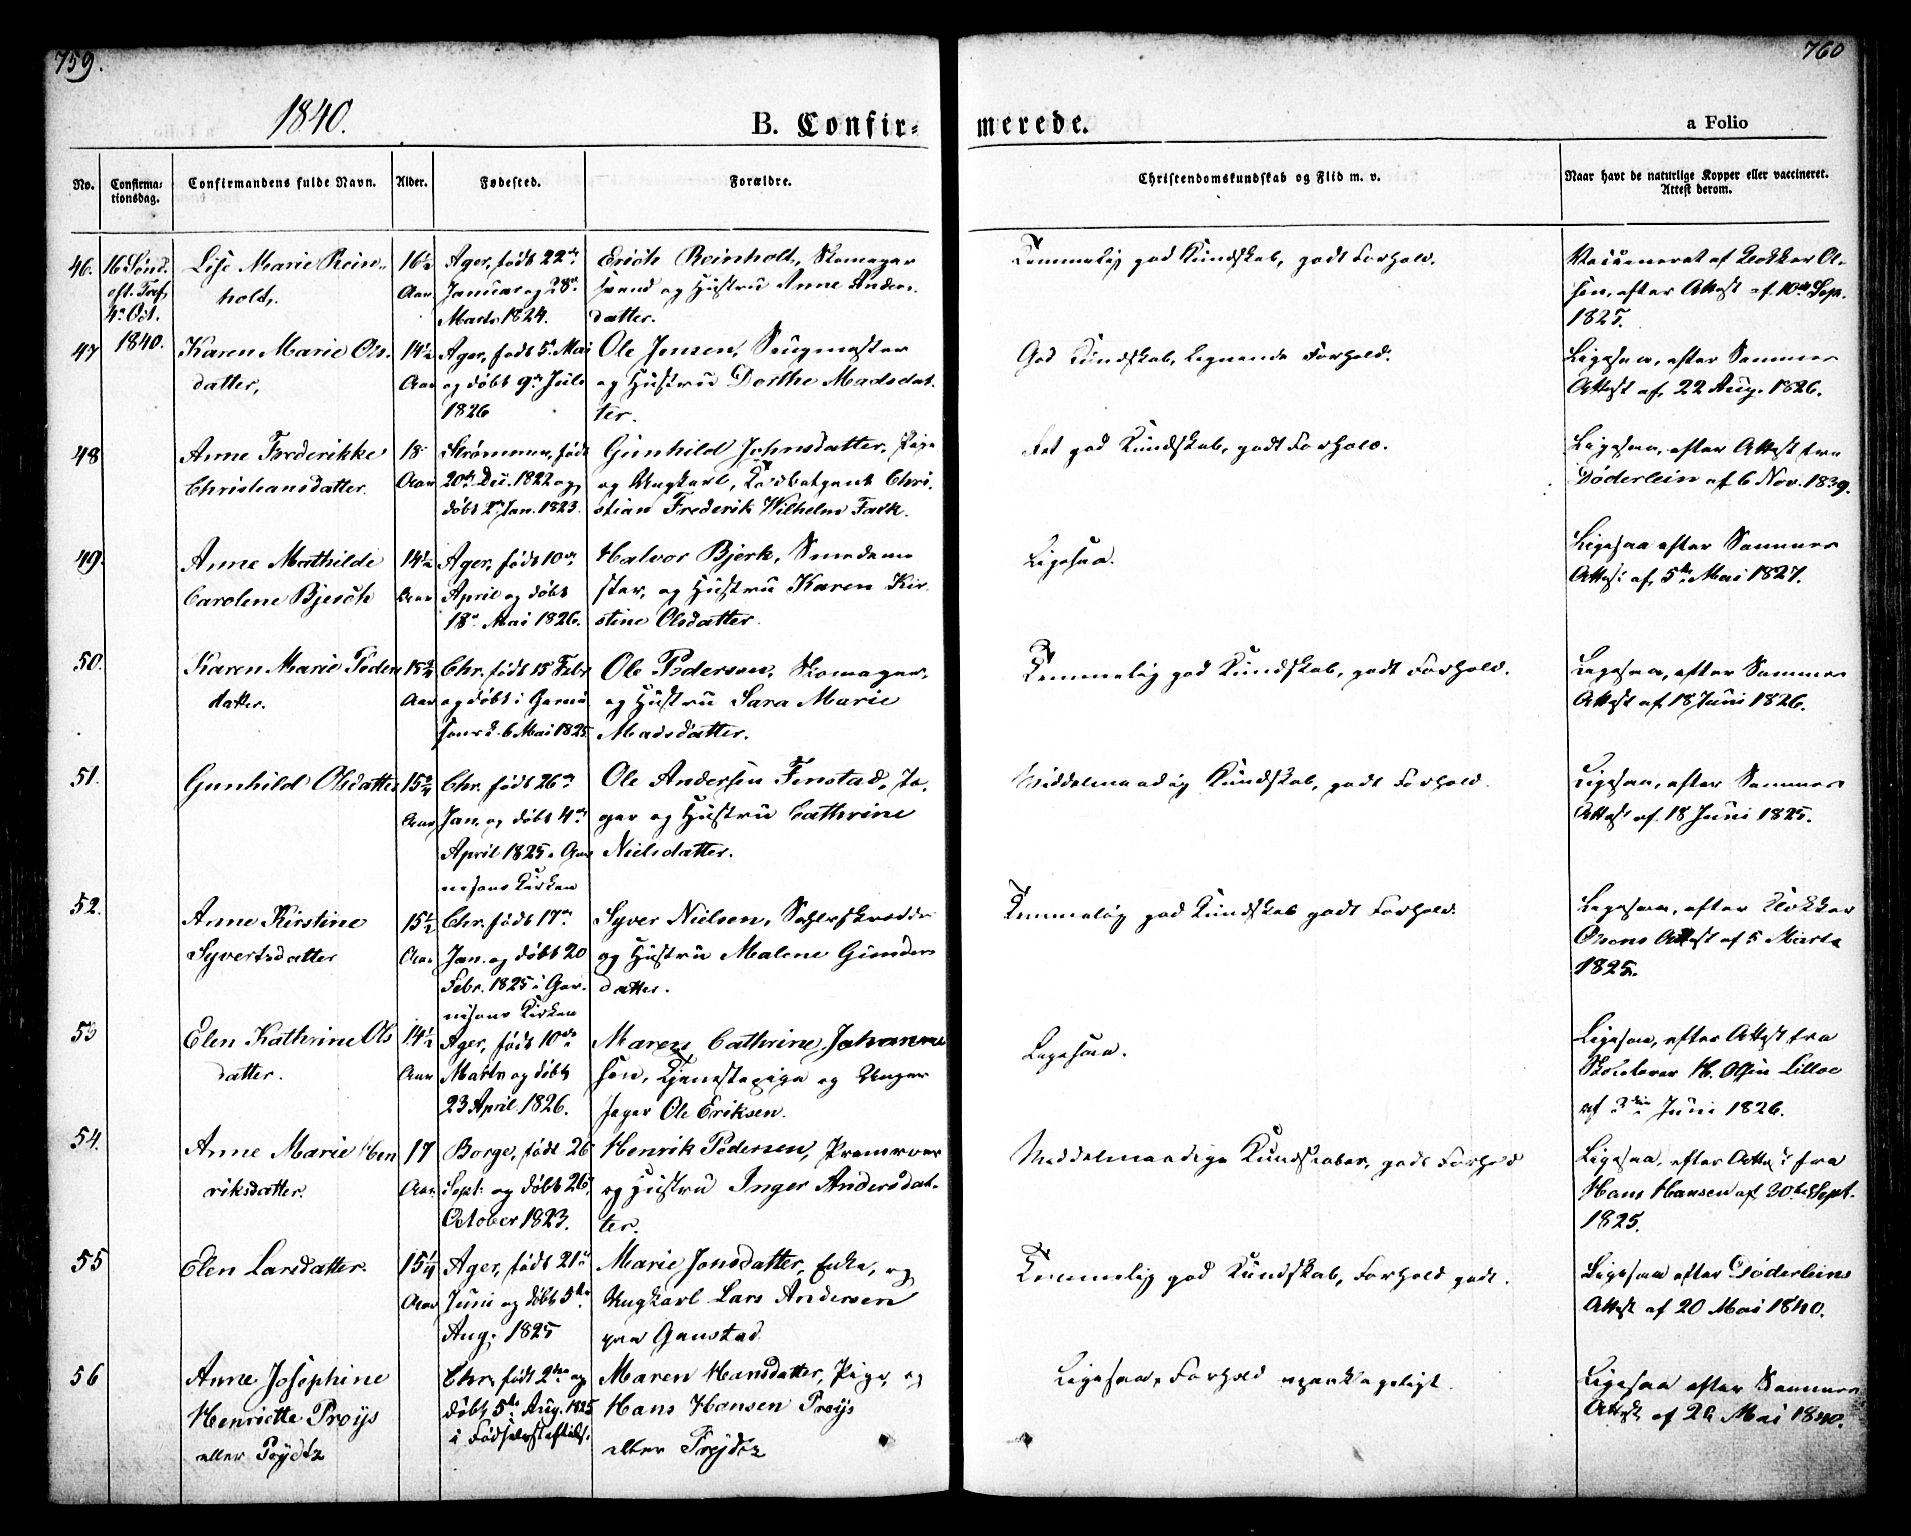 759.
760
1840.
B. Confir-
merede.
a Folio
No.
Confirma-
tionsdag.
Confirmandens fulde Navn.
Alder.
Fødested.
Forældre.
Christendomskundskab og Flid m. v.
Naar havt de naturlige Kopper eller vaccineret.
Attest derom.
46.
16 Sønd.
eft. Tref.
4de Oct.
1840.
Lise Marie Rein-
hold,
16½
Aar
Ager, født 22de
Januar og 28de
Marts 1824.
Erich Reinholt, Skomager
svend og Hustru Anne Anders
datter.
Temmelig god Kundskab, godt Forhold.
Vaccineret af Klokker Ol-
sen, efter Attest af 10de Sep.
1825.
47
Karen Marie Ols-
datter,
14½
Aar
Ager, født 5te Mai
og døbt 9de Juli
1826
Ole Jensen, Saugmester
og Hustru Dorthe Madsdat-
ter.
God Kundskab, Lignende Forhold.
Ligesaa, efter Sammes
Attest af 22 Aug. 1826.
48
Anne Frederikke
Christiansdatter.
18
Aar
Strømmen, født
20de Dec. 1822 og
døbt 2den Jan. 1823.
Gunhild Johnsdatter, Pige
og Ungkarl, Chri-
stian Frederik Wilhelm Falk.
Ret god Kundskab, godt Forhold.
Ligesaa, efter Attest fra
Døderlein af 6 Nov. 1839.
49.
Anne Mathilde
Carolene Bjerch
14½
Aar
Ager, født 10de
April og døbt
18de Mai 1826.
Halvor Bjerk, Smedeme
ster, og Hustru Karen Kir-
stine Olsdatter.
Ligesaa.
Ligesaa efter Sammes
Attest af 5te Mai 1827.
50.
Karen Marie Peders
datter.
15¾
Aar
Chr. født 15 Febr
og døbt i Garni
sons d. 6 Mai 1825
Ole Pedersen, Skomager,
og Hustru Sara Marie
Madsdatter.
Temmelig god Kundskab, godt Forhold.
Ligesaa, efter Sammes
Attest af 18 Juni 1826.
51.
Gunhild Olsdatter
15¾
Aar
Chr. født 26de
Jan. og døbt 4de
April 1825 i Gar
nisons Kirken
Ole Andersen Finstad, Jæ-
ger og Hustru Cathrine
Nielsdatter.
Middelmaadig Kundskab, godt Forhold.
Ligesaa, efter Sammes
Attest af 18 Juni 1825.
52.
Anne Kirstine
Syvertsdatter
15½
Aar
Chr. født 17de
Jan. og døbt 20
Febr. 1825 i Gar-
nisons Kirken
Syver Nielsen,
og Hustru Malene Gunders
datter.
Temmelig god Kundskab godt Forhold.
Ligesaa, efter Klokker
Olsens Attest af 5 Marts
1825.
53
Elen Kathrine Ols
datter.
14½
Aar
Ager, født 10de
Marts og døbt
23 April 1826.
Maren Cathrine Johanne
sen, Tjenestepige og Ungkar
Jeger Ole Eriksen.
Ligesaa.
Ligesaa, efter Attest fra
Skolelærer H. Olsen Lilloe
af 3die Juni 1826.
54.
Anne Marie Hen
riksdatter.
17
Aar
Borge, født 26
Sept. og døbt 26
October 1823.
Henrik Pedersen,
og Hustru Inger Andersdat-
ter.
Middelmaadige Kundskaber, godt Forhold
Ligesaa, efter Attest fra
Hans Hansen af 30te Sept.
1825.
55
Elen Larsdatter.
15¼
Aar
Ager, født 21de
Juni og døbt 5te
Aug. 1825
Marie Jonsdatter, Enke, og
Ungkarl Lars Andersen
paa Gaustad
Temmelig god Kundskab, Forhold godt.
Ligesaa efter Døderleins
Attest af 20 Mai 1840.
56
Anne Josephine
Henriette Prøys
eller Prøydz
Chr. født 2den og
døbt 5te Aug. 1825
i Fødselsstiftels.
Maren Hansdatter, Pige, og
Hans Hansen Prøys
eller Prøydz
Ligesaa, Forhold upaaklageligt.
Ligesaa efter Sammes
Attest af 26 Mai 1840.